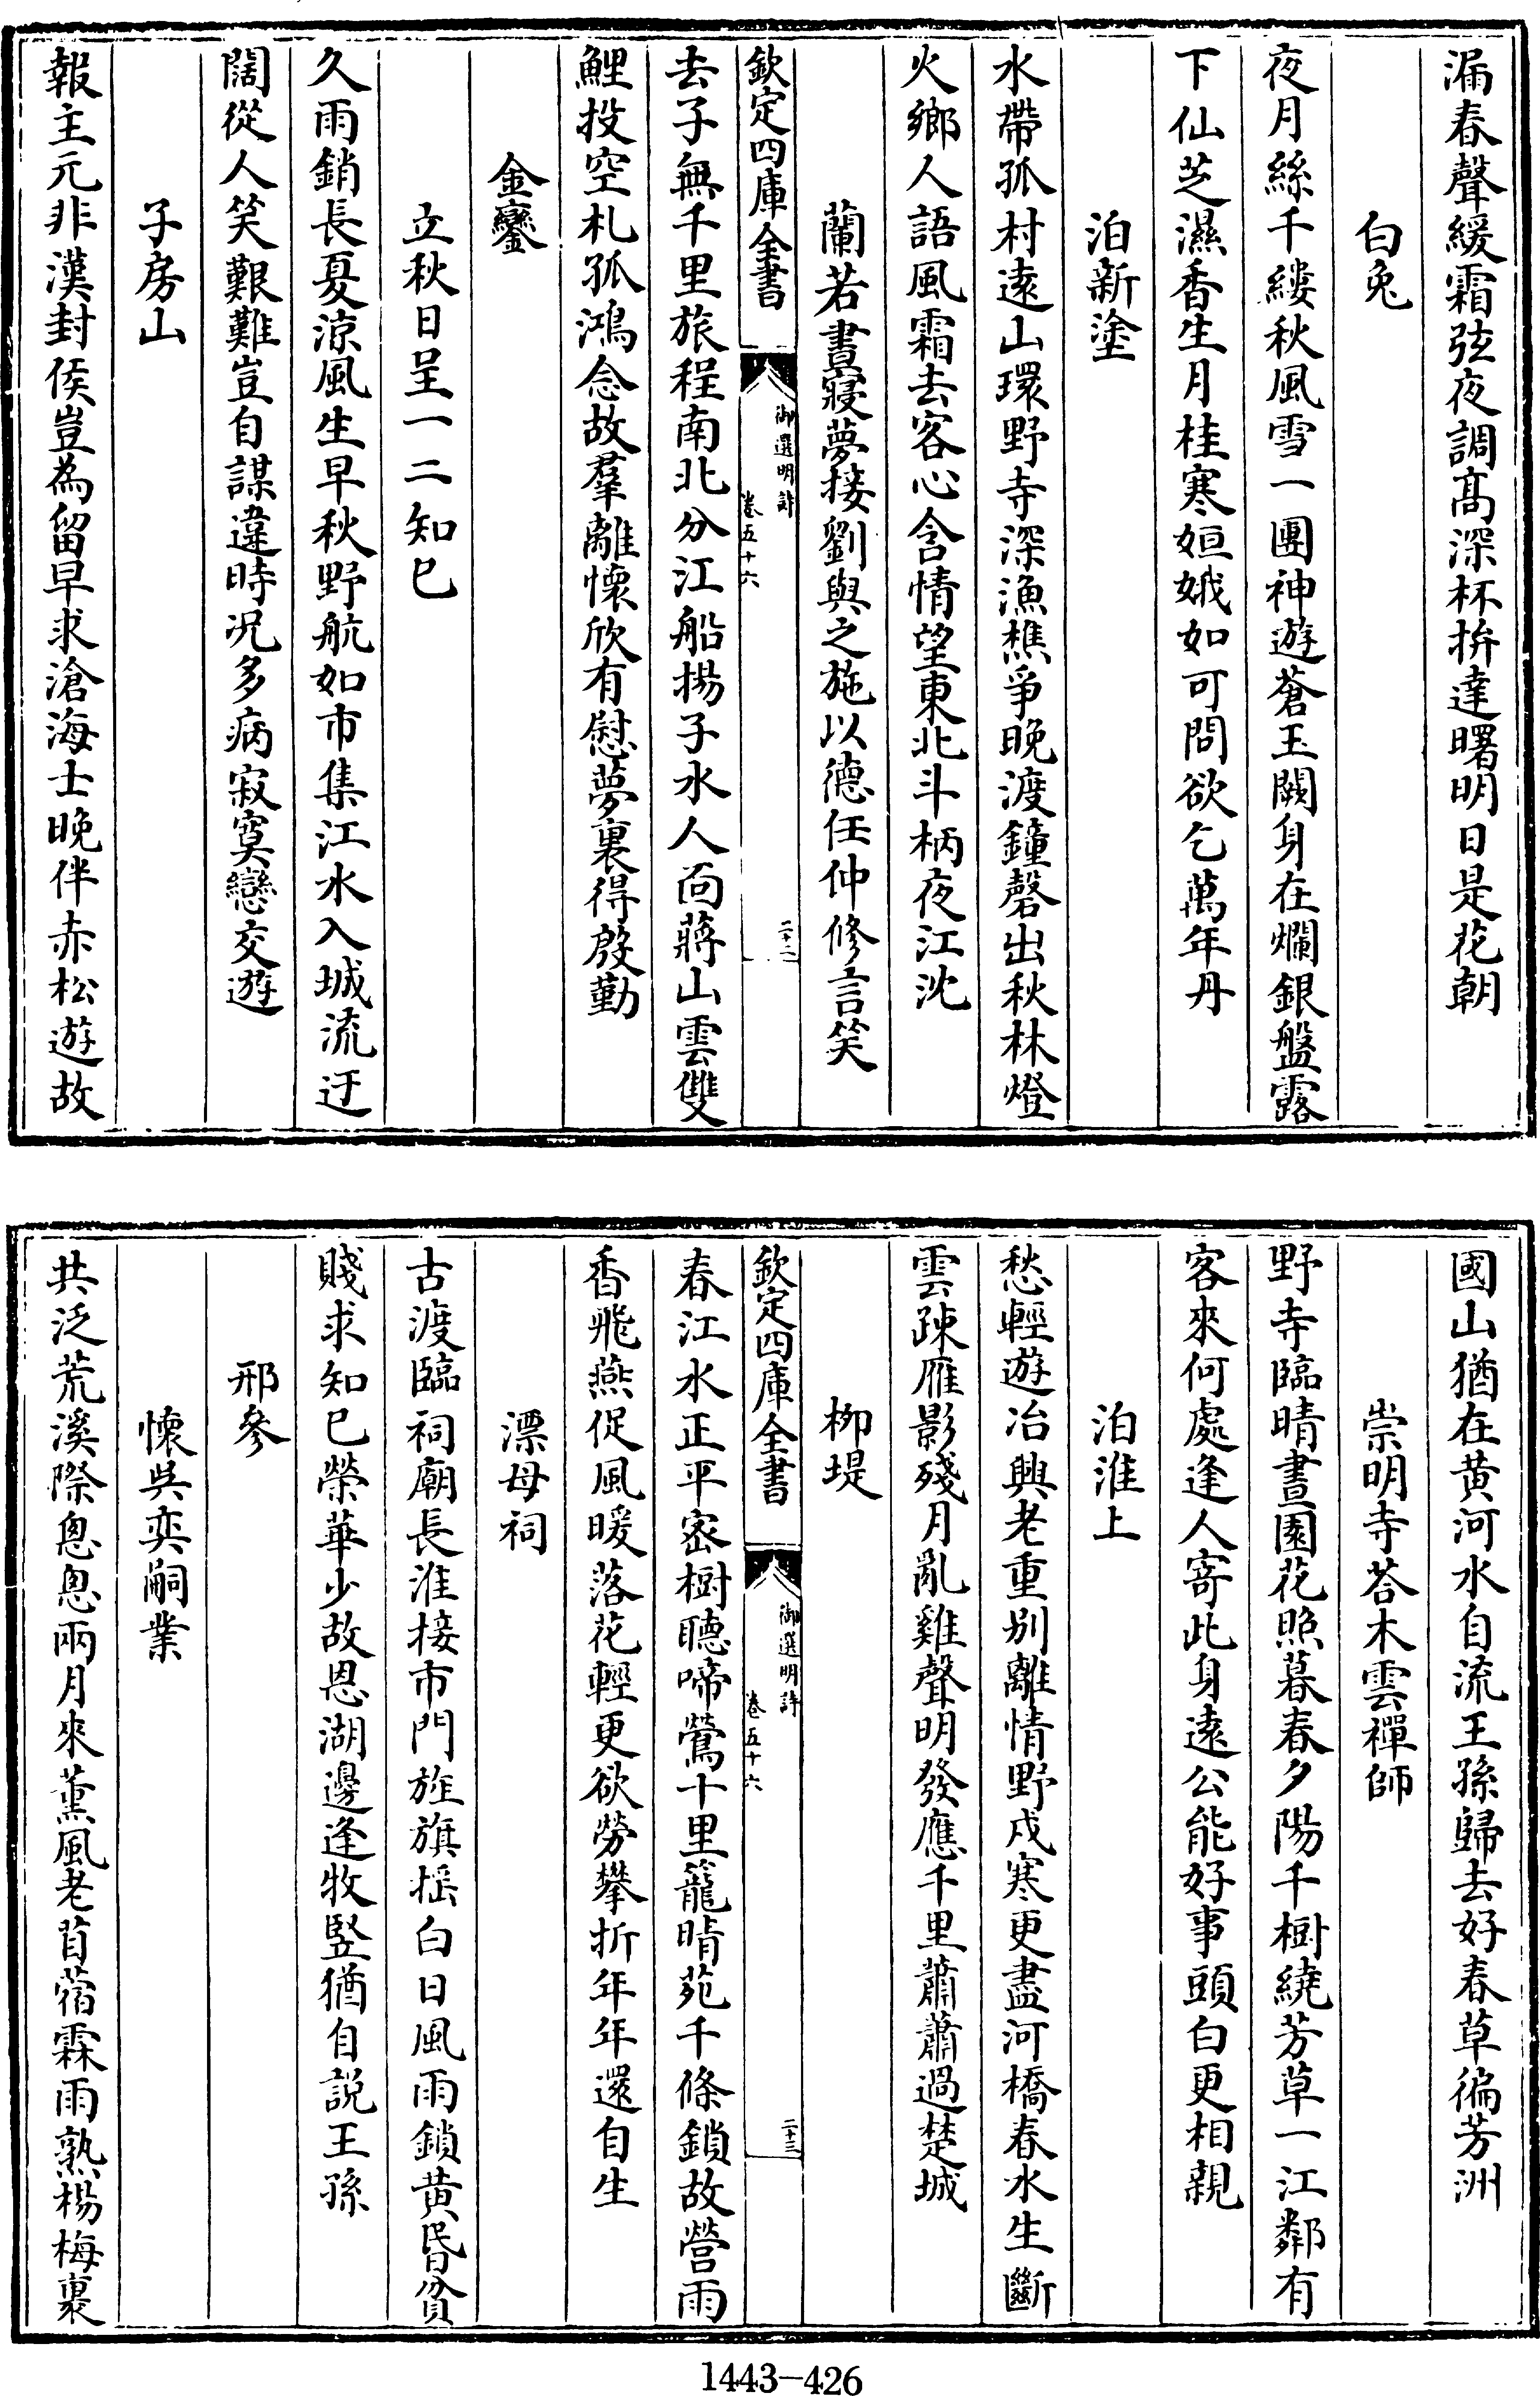 漏春聲緩霜弦夜調髙深杯拚達曙明日是花朝
白兔
夜月絲千縷秋風雪一團神遊蒼玉闕身在爛銀盤露
下仙芝濕香生月桂寒姮娥如可問欲乞萬年丹
泊新塗
水帶孤村遠山環野寺深漁樵爭晚渡鐘磬出秋林燈
火鄉人語風霜去客心含情望東北斗柄夜江沈
蘭若晝寢夢接劉與之施以德任仲修言笑
欽定四庫全書
御選明詩
卷五十六
二十二
去子無千里旅程南北分江船揚子水人面蔣山雲雙
鯉投空札孤鴻念故羣離懷欣有慰夢裏得殷勤
金鑾
立秋日呈一二知已
久雨銷長夏涼風生早秋野航如市集江水入城流迂
闊從人笑艱難豈自謀違時况多病寂寞戀交遊
子房山
報主元非漢封侯豈為留早求滄海士晚伴赤松遊故
國山猶在黄河水自流王孫歸去好春草徧芳洲
崇明寺荅木雲禪師
野寺臨晴晝園花照暮春夕陽千樹繞芳草一江鄰有
客來何處逢人寄此身遠公能好事頭白更相親
泊淮上
愁輕遊冶興老重别離情野戍寒更盡河橋春水生斷
雲疎雁影殘月亂雞聲明發應千里蕭蕭過楚城
栁堤
欽定四庫全書
御選明詩
卷五十六
二十三
春江水正平宻樹聽啼鶯十里籠晴苑千條鎖故營雨
香飛燕促風暖落花輕更欲勞攀折年年還自生
漂母祠
古渡臨祠廟長淮接市門旌旗揺白日風雨鎖黄昏貧
賤求知已榮華少故恩湖邊逢牧豎猶自説王孫
邢參
懷吳奕嗣業
共泛荒溪際悤悤兩月來薰風老苜蓿霖雨熟楊梅裏
1443-426